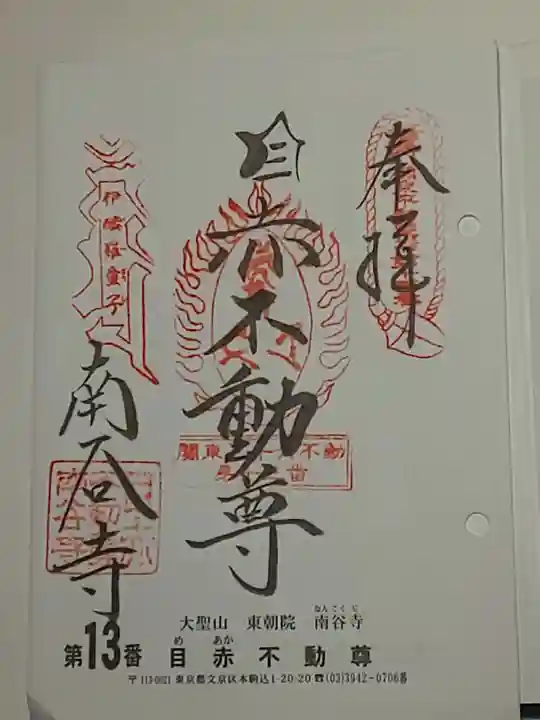 奉拝
目赤不動尊
伊醯羅童子
南谷寺
大聖山 東朝院 南谷寺
なんこくじ
第13番 目赤不動尊
め あか
〒113-0021 東京都文京区本駒込1-20-20 ☎(03)3942-0706番